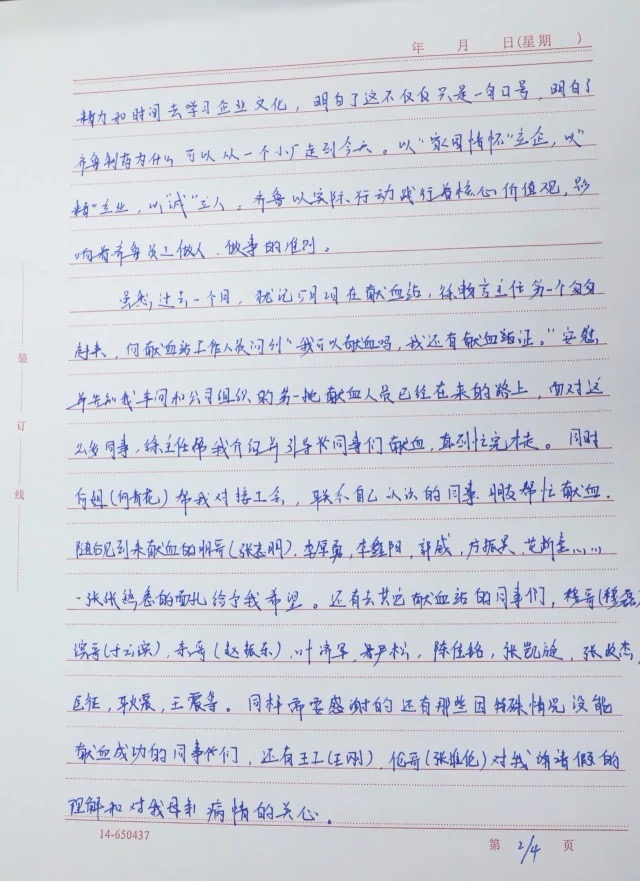 年 月 日(星期 )
精力和时间去学习企业文化，明白了这不仅仅只是一句口号，明白了
齐鲁制药为什么可以从一个小厂走到今天。以“家国情怀”立企，以“
精”立业，以“诚”立人。齐鲁以实际行动践行着核心价值观，影
响着齐鲁员工做人、做事的准则。
虽然过去一个月，犹记5月2日在献血站，徐主任第一个匆匆
赶来，向献血站工作人员问到“我可以献血吗，我还有献血证。”安慰
并告知我车间和公司组织的第一批献血人员已经在来的路上，面对这
么多同事，徐主任帮我介绍并引导长同事们献血，直到忙完才走。同时
何姐(何青花)帮我对接工会，联系自己认识的同事、朋友帮忙献血。
随后见到来献血的明哥(张志明)，李厚勇，李鑫阳，郭威，方振昊，
一张张熟悉的面孔给予我希望。还有去其它献血站的同事们，程哥(程磊)
滨哥(于云滨)，东哥(赵振东)，叶济军，严松，陈佳铭，张凯旋，张政杰，
匡征，耿震，王震等。同样需要感谢的还有那些因特殊情况没能
献血成功的同事们，还有王工(王刚)，伦哥(张维伦)对我请假的
理解和对我母亲病情的关心。
装
订
线
14-650437
第 2/4 页